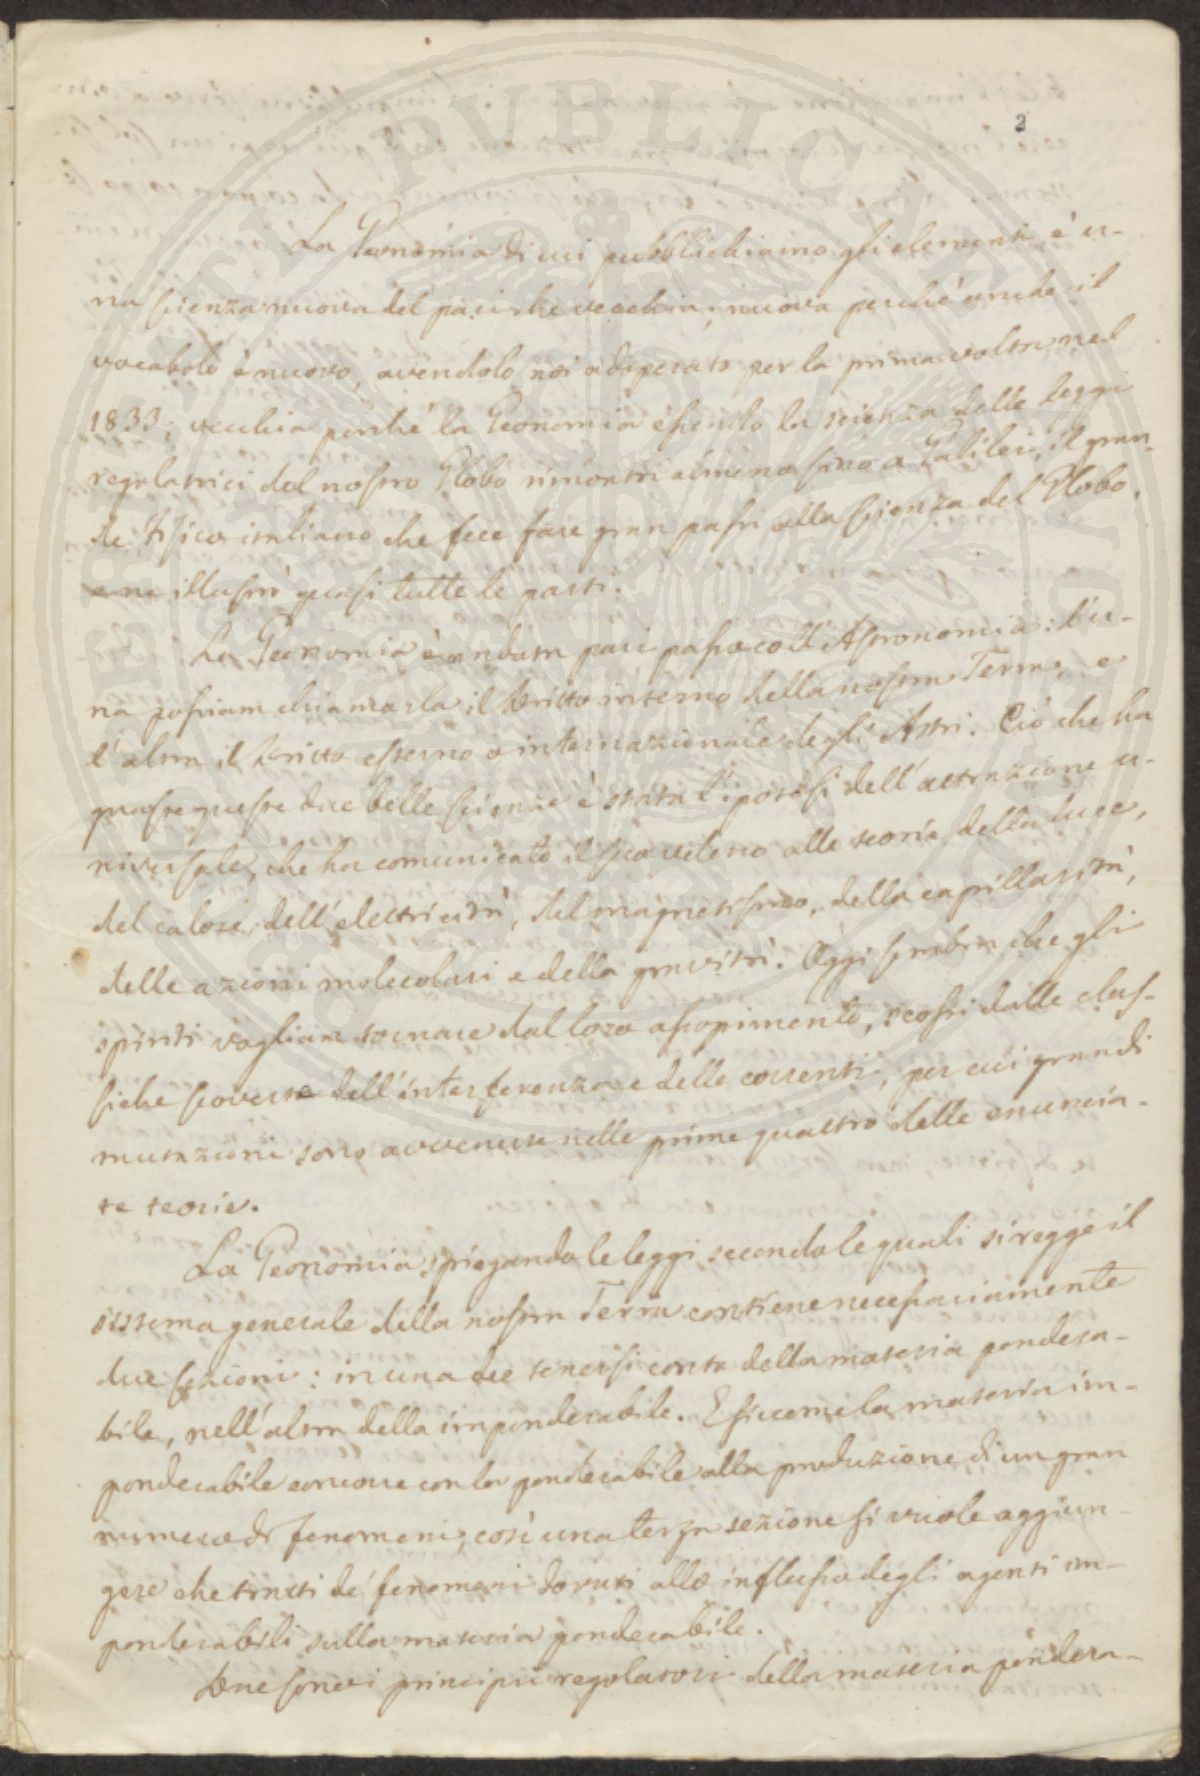 2
La Geonomia di cui pubblichiamo gli elementi, è u-
na scienza nuova del pari che vecchia; nuova perchè anche il
vocabolo è nuovo, avendolo noi adoperato per la prima volta nel
1833; vecchia perchè la Geonomia essendo la scienza delle leggi
regolatrici del nostro Globo rimonta almeno sino a Galilei, il gran-
de Fisico italiano che fece fare gran passi alla scienza del Globo,
e ne illustrò quasi tutte le parti.
La Geonomia è andata pari passo coll'Astronomia: l'u-
na possiam chiamarla il Dritto interno della nostra Terra, e
l'altra il Dritto esterno o internazionale degli Astri. Ciò che ha
guaste queste due belle scienze è stata l'ipotesi dell'attrazione u-
niversale, che ha comunicato il suo veleno alle teorie della luce,
del calore, dell'elettricità, del magnetismo, della capillarità,
delle azioni molecolari e della gravità. Oggi sembra che gli
spiriti vogliam tornare dal loro assopimento, scossi dalle clas-
siche scoverte dell'interferenza e delle correnti, per cui grandi
mutazioni sono avvenute nelle prime quattro delle enuncia-
te teorie.
La Geonomia spiegando le leggi secondo le quali si regge il
sistema generale della nostra Terra contiene necessariamente
due sezioni: in una dee tenersi conto della materia pondera-
bile, nell'altra della imponderabile. E siccome la materia im-
ponderabile concorre con la ponderabile alla produzione di un gran
numero di fenomeni; così una terza sezione si vuole aggiun-
gere che tratti de' fenomeni dovuti allo influsso degli agenti im-
ponderabili sulla materia ponderabile.
Due sono i principii regolatori della materia pondera-